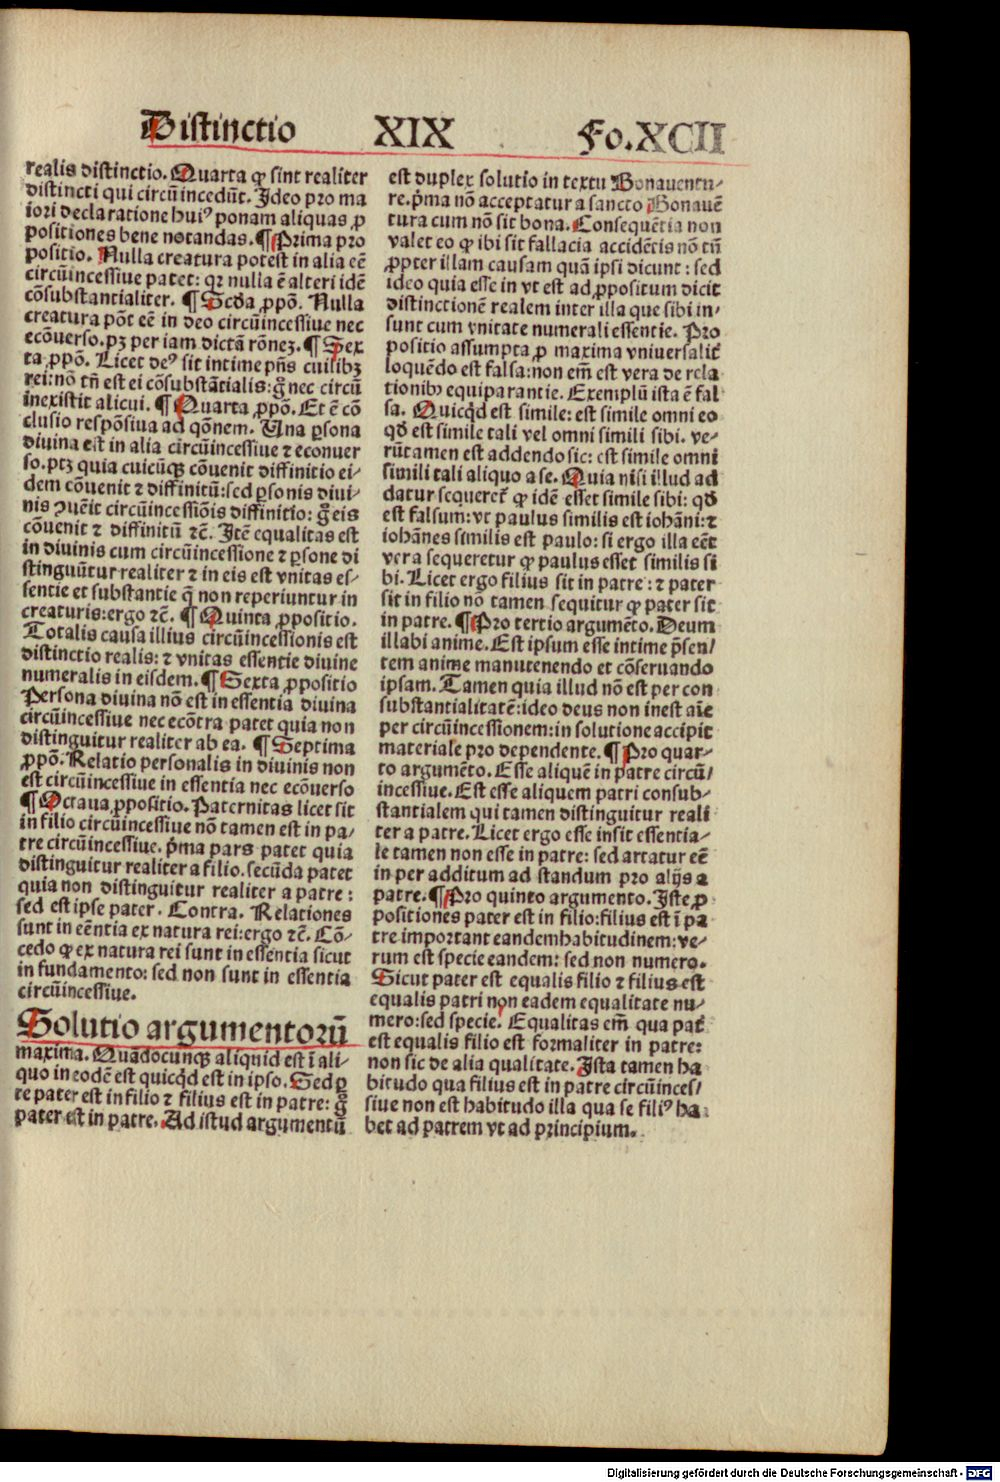 Distinctio XIX Fo.XCII
realis distinctio. Quarta ꝙ sint realiter
distincti qui circūincedūt. Ideo pro ma
iori declaratione huiꝰ ponam aliquas ꝓ
positiones bene notandas. ¶ Prima pro
positio. Nulla creatura potest in alia eē
circūincessiue patet: qꝛ nulla ē alteri idē
cōsubstantialiter. ¶ Scđa ꝓpō. Nulla
creatura pōt eē in deo circūincessiue nec
ecōuerso. pꝫ per iam dictā rōneꝫ. ¶ Sex
ta ꝓpō. Licet deꝰ sit intime pn̄s cuilibꝫ
rei: nō tn̄ est ei cōsubstātialis: g̊ nec circū
inexistit alicui. ¶ Quarta ꝓpō. Et ē cō
clusio respōsiua ad qōnem. Una ꝑsona
diuina est in alia circūincessiue ⁊ econuer
so. ptꝫ quia cuicūqꝫ cōuenit diffinitio ei-
dem cōuenit ⁊ diffinitū: sed ꝑsonis diui-
nis ꝯuēit circūincessiōis diffinitio: g̊ eis
cōuenit ⁊ diffinitū ⁊c̄. Itē equalitas est
in diuinis cum circūincessione ⁊ ꝑsone di
stinguūtur realiter ⁊ in eis est vnitas es-
sentie et substantie q̄ non reperiuntur in
creaturis: ergo ⁊c̄. ¶ Quinta ꝓpositio.
Totalis causa illius circūincessionis est
distinctio realis: ⁊ vnitas essentie diuine
numeralis in eisdem. ¶ Sexta ꝓpositio
Persona diuina nō est in essentia diuina
circūincessiue nec ecōtra patet quia non
distinguitur realiter ab ea. ¶ Septima
ꝓpō. Relatio personalis in diuinis non
est circūincessiue in essentia nec ecōuerso
¶ Octaua ꝓpositio. Paternitas licet sit
in filio circūincessiue nō tamen est in pa-
tre circūincessiue. p̄ma pars patet quia
distinguitur realiter a filio. secūda patet
quia non distinguitur realiter a patre:
sed est ipse pater. Contra. Relationes
sunt in eēntia ex natura rei: ergo ⁊c̄. Cō-
cedo ꝙ ex natura rei sunt in essentia sicut
in fundamento: sed non sunt in essentia
circūincessiue.
Solutio argumentorū
maxima. Quādocunqꝫ aliquid est ī ali-
quo in eodē est quicq̄d est in ipso. Sed ꝑ
te pater est in filio ⁊ filius est in patre: g̊
pater est in patre. Ad istud argumentū
est duplex solutio in textu Bonauentu-
re. p̄ma nō acceptatur a sancto Bonauē
tura cum nō sit bona. Consequētia non
valet eo ꝙ ibi sit fallacia accidētis nō tn̄
ꝓpter illam causam quā ipsi dicunt: sed
ideo quia esse in vt est ad ꝓpositum dicit
distinctionē realem inter illa que sibi in-
sunt cum vnitate numerali essentie. Pro
positio assumpta ꝓ maxima vniuersalit̄
loquēdo est falsa: non em̄ est vera de rela
tionibꝰ equiparantie. Exemplū ista ē fal
sa. Quicq̄d est simile: est simile omni eo
qđ est simile tali vel omni simili sibi. ve-
rūtamen est addendo sic: est simile omni
simili tali aliquo a se. Quia nisi illud ad
datur sequeret̄ ꝙ idē esset simile sibi: qđ
est falsum: vt paulus similis est iohāni: ⁊
iohānes similis est paulo: si ergo illa eēt
vera sequeretur ꝙ paulus esset similis si
bi. Licet ergo filius sit in patre: ⁊ pater
sit in filio nō tamen sequitur ꝙ pater sit
in patre. ¶ Pro tertio argumēto. Deum
illabi anime. Est ipsum esse intime p̄sen-
tem anime manutenendo et cōseruando
ipsam. Tamen quia illud nō est per con
substantialitatē: ideo deus non inest aīe
per circūincessionem: in solutione accipit
materiale pro dependente. ¶ Pro quar-
to argumēto. Esse aliquē in patre circū-
incessiue. Est esse aliquem patri consub-
stantialem qui tamen distinguitur reali
ter a patre. Licet ergo esse insit essentia-
le tamen non esse in patre: sed artatur eē
in per additum ad standum pro alijs a
patre. ¶ Pro quinto argumento. Iste ꝓ
positiones pater est in filio: filius est ī pa
tre important eandem habitudinem: ve-
rum est specie eandem: sed non numero.
Sicut pater est equalis filio ⁊ filius est
equalis patri non eadem equalitate nu-
mero: sed specie. Equalitas em̄ qua pat̄
est equalis filio est formaliter in patre:
non sic de alia qualitate. Ista tamen ha
bitudo qua filius est in patre circūinces-
siue non est habitudo illa qua se filiꝰ ha
bet ad patrem vt ad principium.
Digitalisierung gefördert durch die Deutsche Forschungsgemeinschaft - DFG